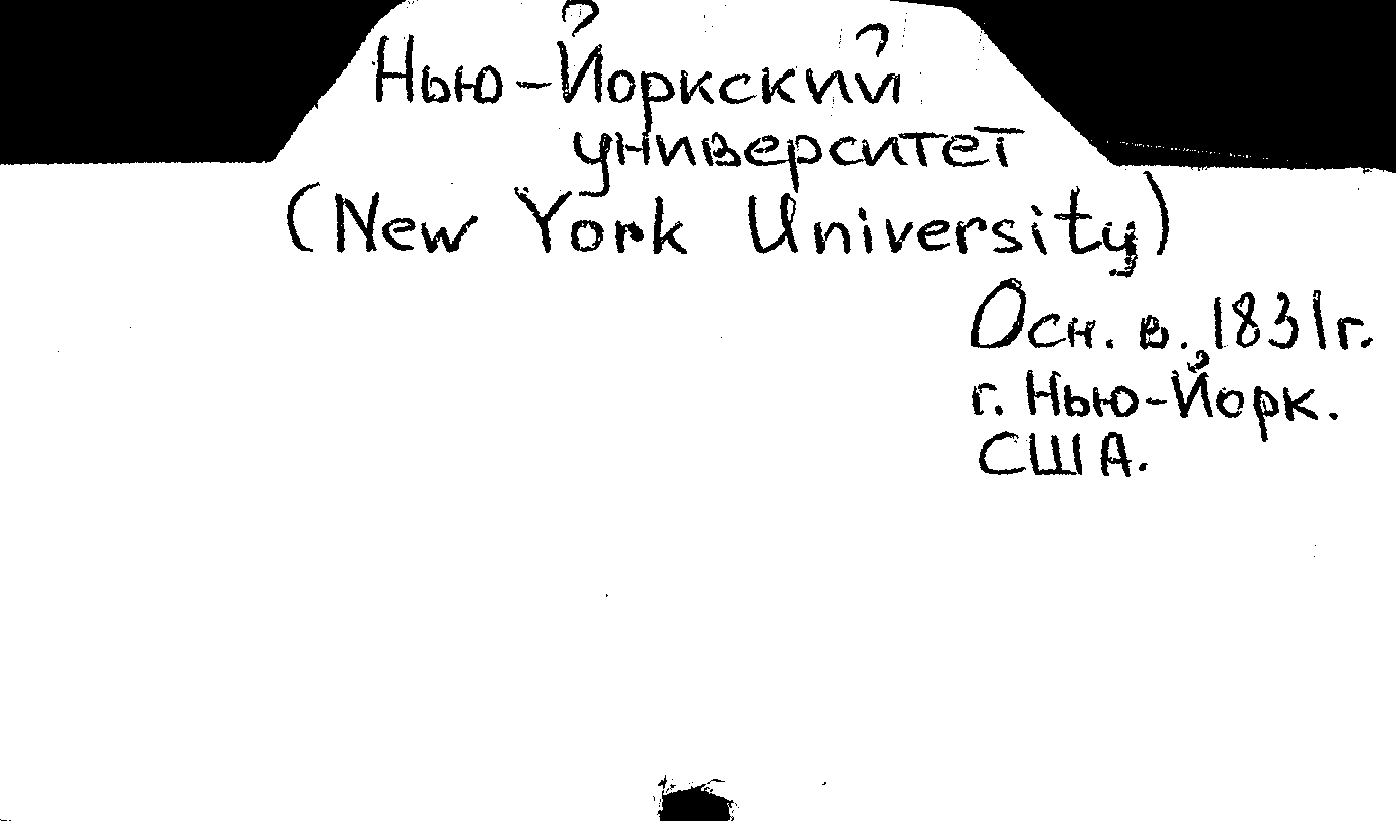 Нью-Йоркский
университет
(New York University)
Осн. в. 1831г.
г. Нью-Йорк.
США.